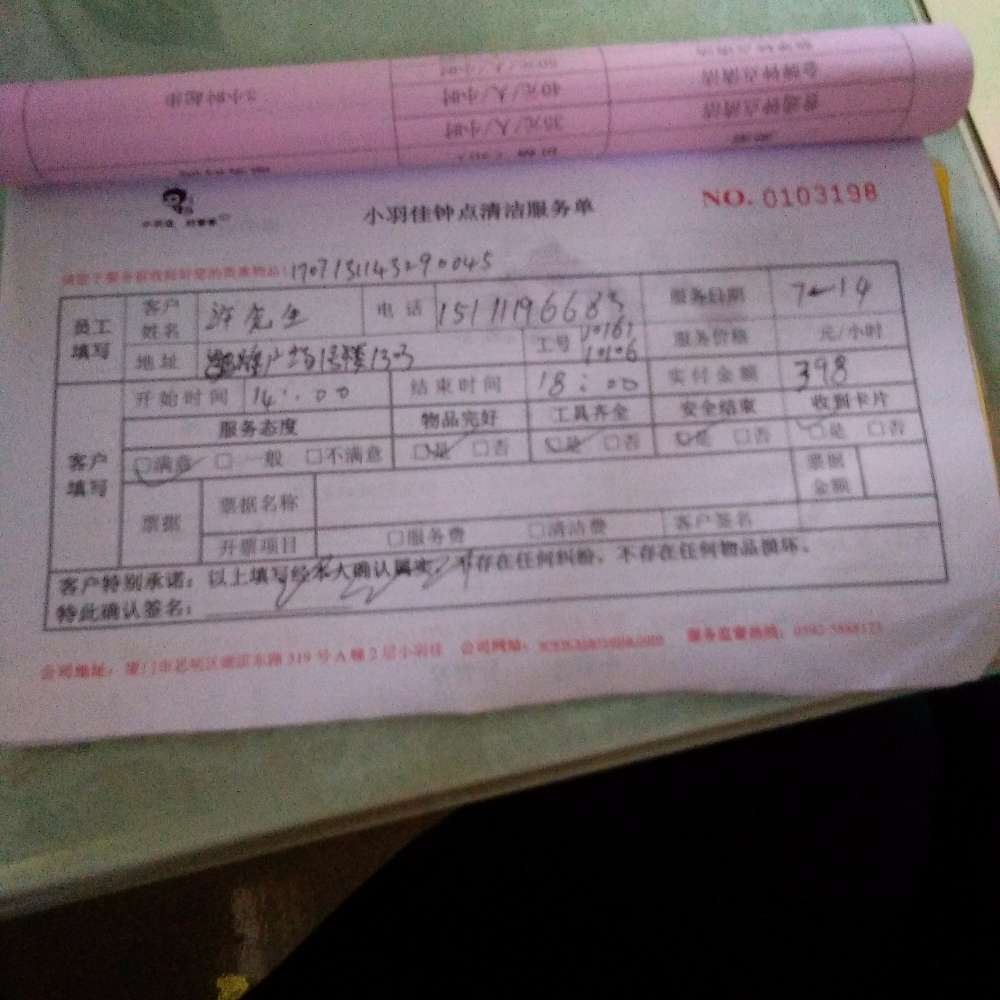 3小时起步 50元/人/小时
40元/人/小时 金牌钟点清洁
35元/人/小时 普通钟点清洁
小羽佳钟点清洁服务单 NO. 0103198
170713114329 0045
员工填写 客户姓名 许先生 电话 15111196683 服务日期 7-14
地址 广场1号楼1303 工号 10161 10106 服务价格 元/小时
客户填写 开始时间 14:00 结束时间 18:00 实付金额 398
服务态度 物品完好 工具齐全 安全结束 收到卡片
□满意 □一般 □不满意 □是 □否 □是 □否 □是 □否 □是 □否
票据 票据名称 票据金额
开票项目 □服务费 □清洁费 客户签名
客户特别承诺:以上填写经本人确认属实,不存在任何纠纷,不存在任何物品损坏。
特此确认签名:
公司地址:厦门市思明区湖滨东路319号A幢2层小羽佳 公司网站: 服务监督热线: